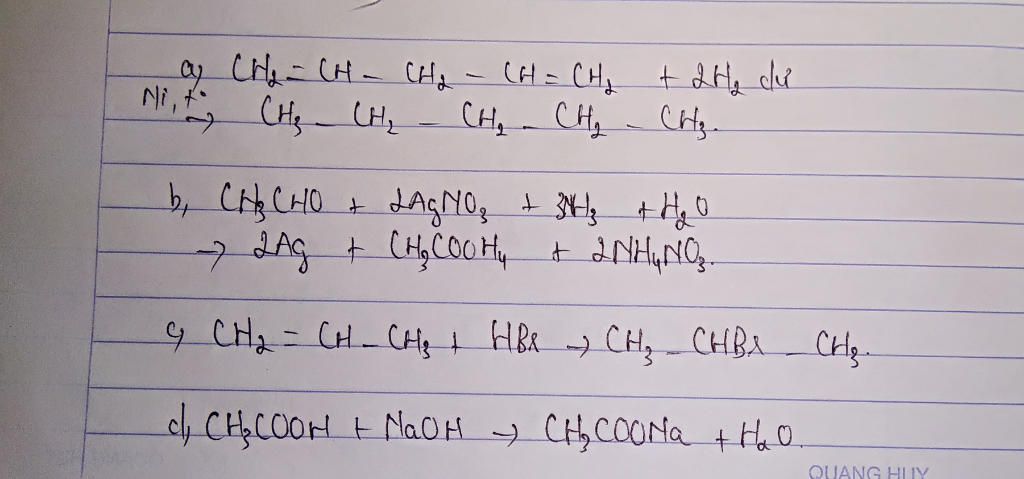 a) CH₂ = CH – CH₂ – CH = CH₂ + 2H₂ dư
Ni, t° → CH₃ – CH₂ – CH₂ – CH₂ – CH₃.
b, CH₃CHO + 2AgNO₃ + 3NH₃ + H₂O
→ 2Ag + CH₃COOH₄ + 2NH₄NO₃.
c) CH₂ = CH – CH₃ + HBr → CH₃ – CHBr – CH₃.
d, CH₃COOH + NaOH → CH₃COONa + H₂O.
QUANG HUY